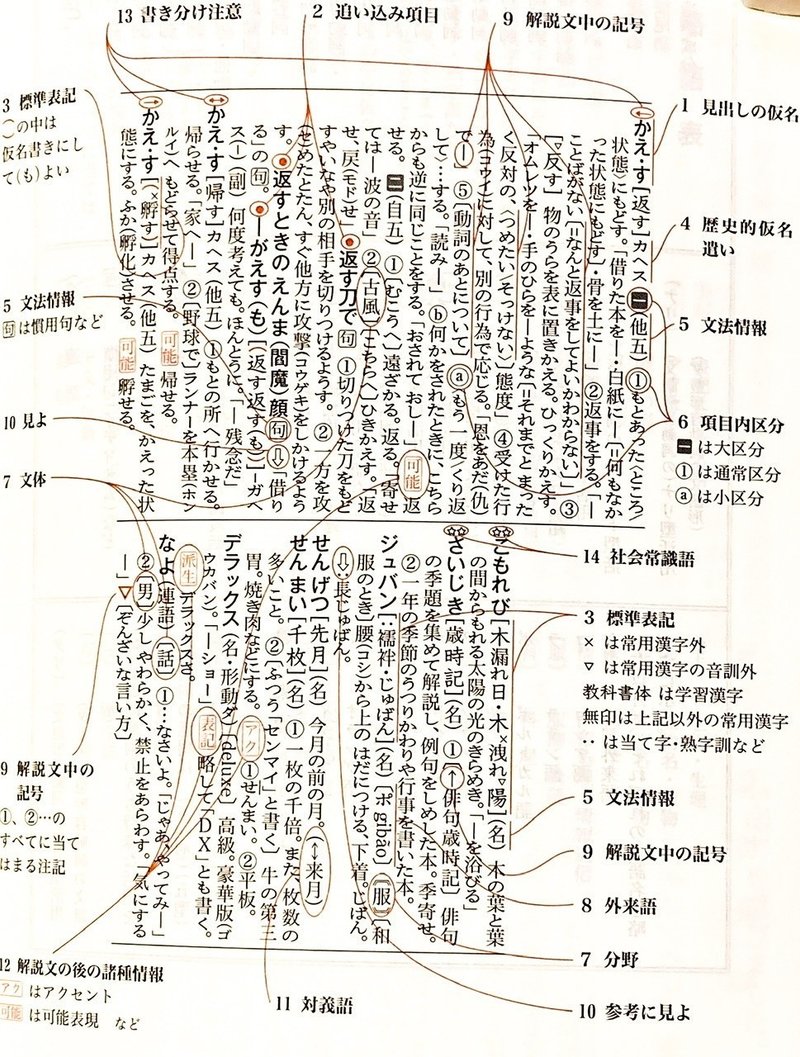 13 書き分け注意
2 追い込み項目
9 解説文中の記号
3 標準表記
〔 〕の中は
仮名書きにし
て(も)よい
1 見出しの仮名
4 歴史的仮名
遣い
5 文法情報
6 項目内区分
㊀ は大区分
① は通常区分
ⓐ は小区分
5 文法情報
句 は慣用句など
10 見よ
7 文体
かえ・す[返す]カヘス ㊀(他五) ①もとあった〈ところ/
状態〉にもどす。「借りた本を―・白紙に―〔=何もなか
った状態にもどす〕・骨を土に―」 ②返事をする。「―
ことばがない〔=なんと返事をしてよいかわからない〕」 ③
[▽反す] 物のうらを表に置きかえる。ひっくりかえす。
「オムレツを―・手のひらを―ような〔=それまでとまった
く反対の、〈つめたい/そっけない〉〕態度」 ④受けた行
為(コウイ)に対して、別の行為で応じる。「恩をあだ(仇)
で―」 ⑤〔動詞のあとについて〕 ⓐもう一度〈くり返
して〉…する。「読み―」 ⓑ何かをされたときに、こちら
からも逆に同じことをする。「おされて おし―」 可能 返
せる。 ㊁(自五) ①〔むこうへ〕遠ざかる。返る。「寄せ
ては―波の音」 ②〔古風〕〔こちらへ〕ひきかえす。「返
せ、戻(モド)せ」 ●返す刀で 句 ①切りつけた刀をもど
すやいなや別の相手を切りつけるようす。 ②一方を攻
(セ)めたとたん、すぐ他方に攻撃(コウゲキ)をしかけるよう
す。 ●返すときのえんま(閻魔)顔 句 ⇩借り
る」の 句。 ●―がえす(も)[(返す返す(も)]―ガヘ
ス(―)(副) 何度考えても。ほんとうに。「―残念だ」
かえ・す[帰す]カヘス(他五) ①もとの所へ行かせる。
帰らせる。「家へ―」 ②〔野球で〕ランナーを本塁(ホン
ルイ)へ もどらせて得点する。 可能 帰せる。
かえ・す[(×孵す)]カヘス(他五) たまごを、かえった状
態にする。ふか(孵化)させる。 可能 孵せる。
こもれび[木漏れ日・木×洩れ▽陽](名) 木の葉と葉
の間からもれる太陽の光のきらめき。「―を浴びる」
さいじき[歳時記](名) ①〔↑俳句歳時記〕 俳句
の季題を集めて解説し、例句をしめした本。季寄せ。
②一年の季節のうつりかわりや行事を書いた本。
ジュバン[‥襦袢・じゅばん](名)〔ポ gibão〕〔服〕〔和
服のとき〕腰(コシ)から上の はだにつける、下着。じばん。
⇩:長じゅばん。
せんげつ[先月](名) 今月の前の月。(↔来月)
せんまい[千枚](名) ①一枚の千倍。また、枚数の
多いこと。 ②〔ふつう「センマイ」と書く〕 牛の第三
胃。焼き肉などにする。 アク ①せんまい。②平板。
デラックス(名・形動ダ)〔deluxe〕 高級。豪華版(ゴ
ウカバン)。「―ショー」 表記 略して「DX」とも書く。
派生 デラックスさ。
なよ(連語)〔話〕 ①…なさいよ。「じゃあ、やってみ―」
②〔男〕少し やわらかく、禁止をあらわす。「気にする
―」▽〔ぞんざいな言い方〕
14 社会常識語
3 標準表記
× は常用漢字外
▽ は常用漢字の音訓外
教科書体 は学習漢字
無印は上記以外の常用漢字
‥ は当て字・熟字訓など
5 文法情報
9 解説文中の記号
8 外来語
7 分野
10 参考に見よ
9 解説文中の
記号
①、②…の
すべてに当て
はまる注記
12 解説文の後の諸種情報
アク はアクセント
可能 は可能表現 など
11 対義語